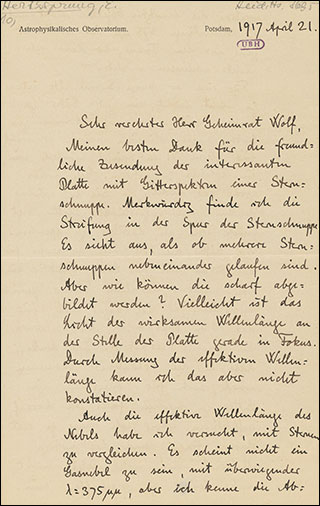 Hertzsprung, E.
Astrophysikalisches Observatorium.
Potsdam, 1917 April 21.
UBH
Sehr verehrter Herr Geheimrat Wolf,
Meinen besten Dank für die freund-
liche Zusendung der interessanten
Platte mit Gitterspektren einer Stern-
schnuppe. Merkwürdig finde ich die
Streifung in der Spur der Sternschnuppe.
Es sieht aus, als ob mehrere Stern-
schnuppen nebeneinander gelaufen sind.
Aber wie können die scharf abge-
bildet werden? Vielleicht ist das
Licht der wirksamen Wellenlänge an
der Stelle der Platte gerade in Fokus.
Durch Messung der effektiven Wellen-
länge kann ich das aber nicht
konstatieren.
Auch die effektive Wellenlänge des
Nebels habe ich versucht, mit Sternen
zu vergleichen. Es scheint nicht ein
Gasnebel zu sein, mit überwiegender
λ=375μμ, aber ich kenne die Ab-